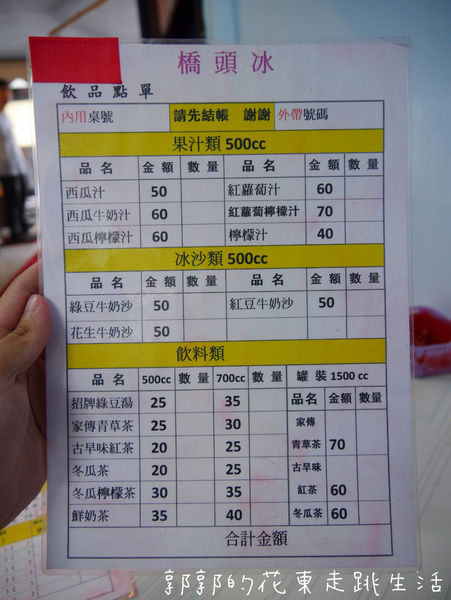 橋頭冰
飲品點單
內用桌號 請先結帳 謝謝 外帶號碼
果汁類 500cc
品名 金額 數量 品名 金額 數量
西瓜汁 50 紅蘿蔔汁 60
西瓜牛奶汁 60 紅蘿蔔檸檬汁 70
西瓜檸檬汁 60 檸檬汁 40
冰沙類 500cc
品名 金額 數量 品名 金額 數量
綠豆牛奶沙 50 紅豆牛奶沙 50
花生牛奶沙 50
飲料類
品名 500cc 數量 700cc 數量 罐裝 1500 cc
招牌綠豆湯 25 35 品名 金額 數量
家傳青草茶 25 30 家傳
古早味紅茶 20 25 青草茶 70
冬瓜茶 20 25 古早味
冬瓜檸檬茶 30 35 紅茶 60
鮮奶茶 35 40 冬瓜茶 60
合計金額
郭郭的花東走跳生活